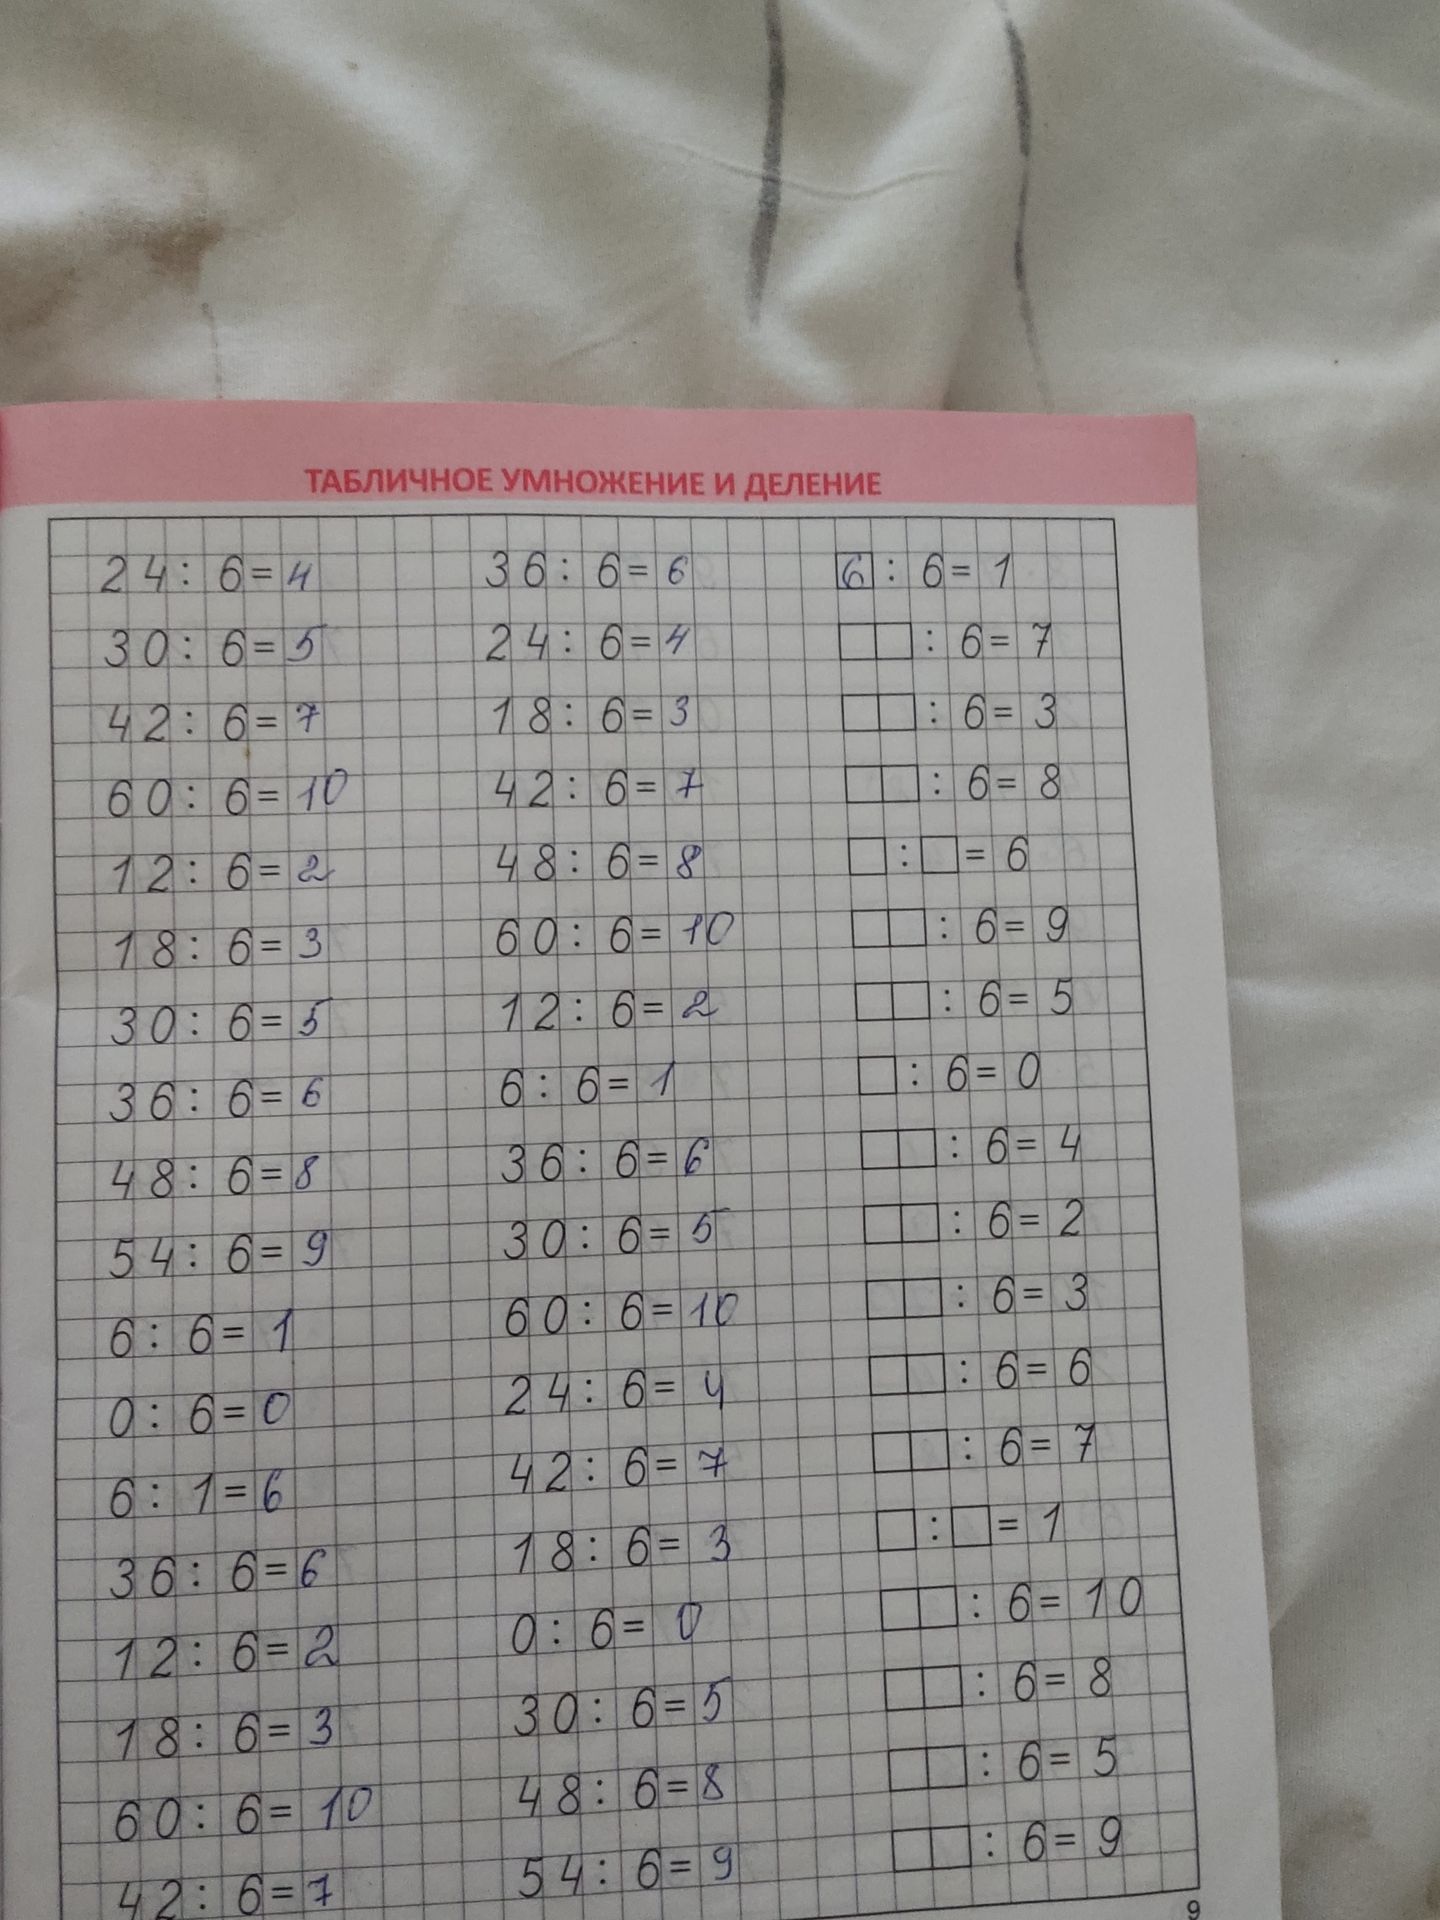 ТАБЛИЧНОЕ УМНОЖЕНИЕ И ДЕЛЕНИЕ
24 : 6 = 4
30 : 6 = 5
42 : 6 = 7
60 : 6 = 10
12 : 6 = 2
18 : 6 = 3
30 : 6 = 5
36 : 6 = 6
48 : 6 = 8
54 : 6 = 9
6 : 6 = 1
0 : 6 = 0
6 : 1 = 6
36 : 6 = 6
12 : 6 = 2
18 : 6 = 3
60 : 6 = 10
42 : 6 = 7
36 : 6 = 6
24 : 6 = 4
18 : 6 = 3
42 : 6 = 7
48 : 6 = 8
60 : 6 = 10
12 : 6 = 2
6 : 6 = 1
36 : 6 = 6
30 : 6 = 5
60 : 6 = 10
24 : 6 = 4
42 : 6 = 7
18 : 6 = 3
0 : 6 = 0
30 : 6 = 5
48 : 6 = 8
54 : 6 = 9
6 : 6 = 1
□□ : 6 = 7
□□ : 6 = 3
□□ : 6 = 8
□ : □ = 6
□□ : 6 = 9
□□ : 6 = 5
□ : 6 = 0
□□ : 6 = 4
□□ : 6 = 2
□□ : 6 = 3
□□ : 6 = 6
□□ : 6 = 7
□ : □ = 1
□□ : 6 = 10
□□ : 6 = 8
□□ : 6 = 5
□□ : 6 = 9
9